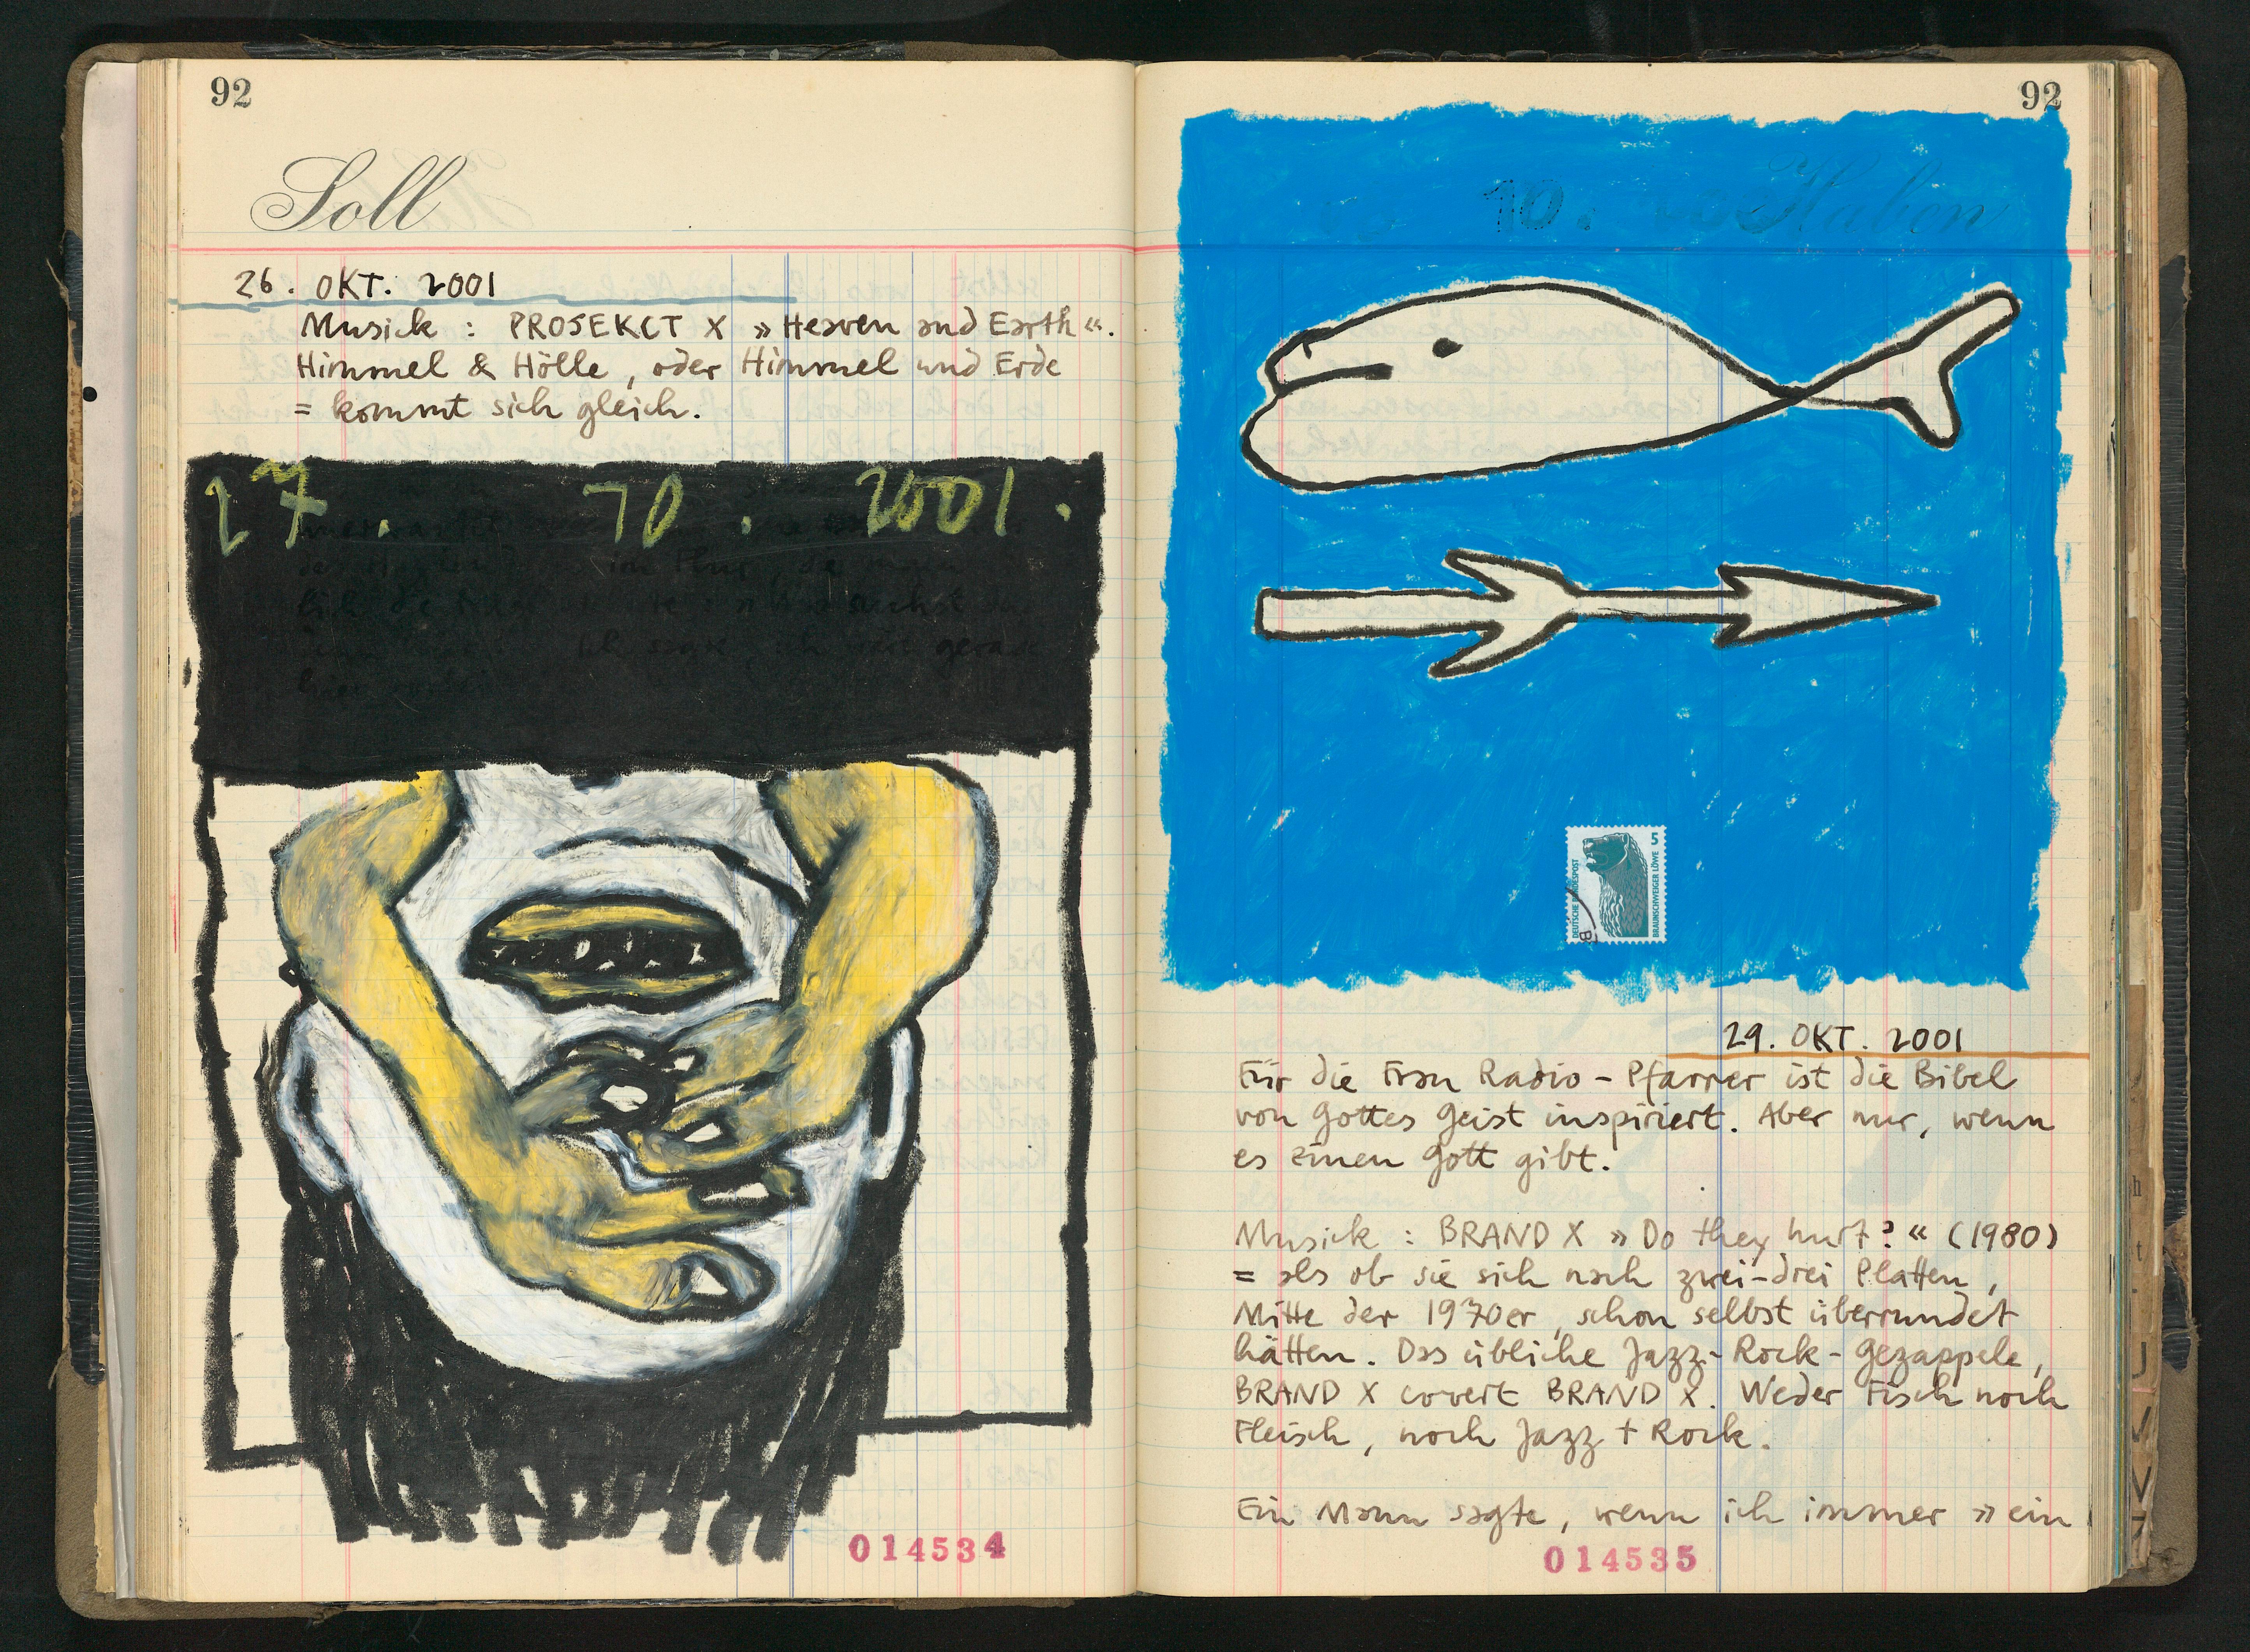 92
Soll
26. OKT. 2001
Musick : PROJEKCT X »Heaven and Earth«.
Himmel & Hölle, oder Himmel und Erde
= kommt sich gleich.
27. 10. 2001.
im
sagte, ich gerade
014534
92
Haben
10.
DEUTSCHE BUNDESPOST
5
BRAUNSCHWEIGER LÖWE
29. OKT. 2001
Für die Frau Radio-Pfarrer ist die Bibel
von Gottes Geist inspiriert. Aber nur, wenn
es einen Gott gibt.
Musick : BRAND X »Do they hurt?« (1980)
= als ob sie sich nach zwei-drei Platten,
Mitte der 1970er, schon selbst überrundet
hätten. Das übliche Jazz-Rock-Gezappele,
BRAND X covert BRAND X. Weder Fisch noch
Fleisch, noch Jazz + Rock.
Ein Mann sagte, wenn ich immer »ein
014535